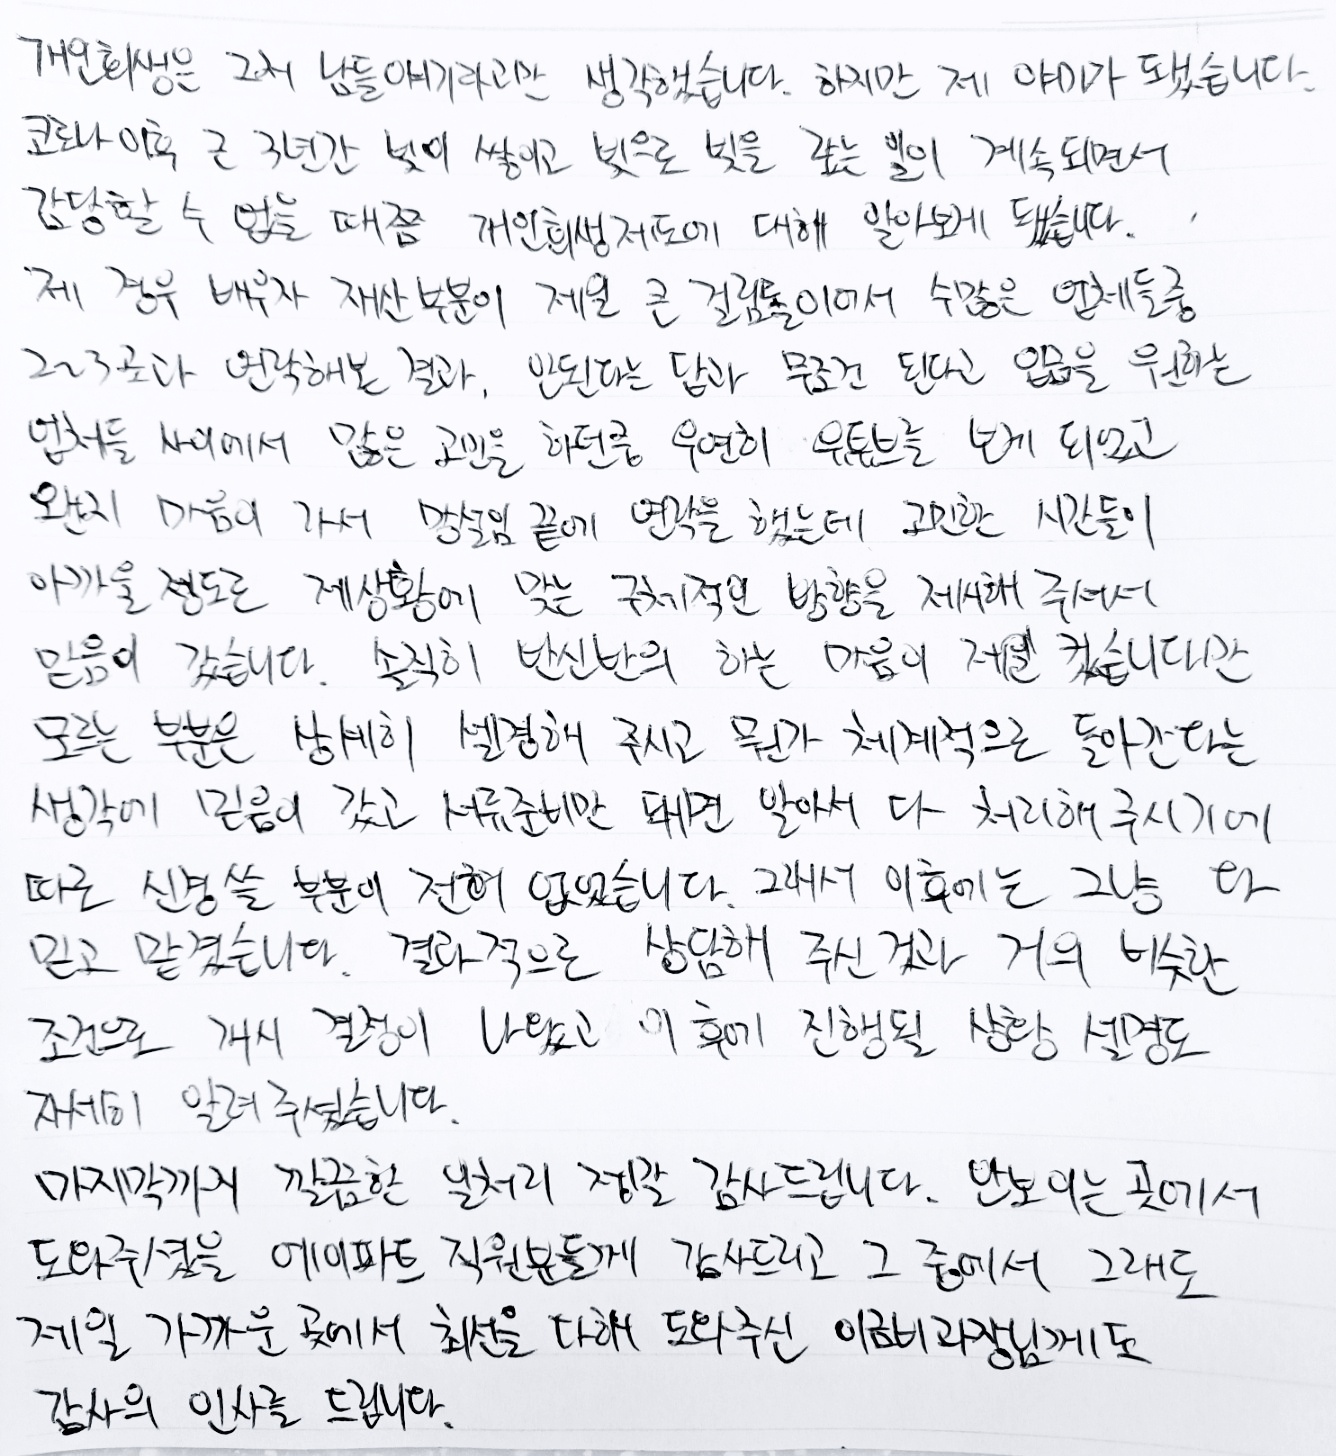 개인회생은 그저 남들얘기라고만 생각했습니다. 하지만 제 얘기가 됐습니다.
코로나 이후 근 3년간 빚이 쌓이고 빚으로 빚을 갚는 일이 계속되면서
감당할 수 없을 때쯤 개인회생제도에 대해 알아보게 됐습니다.
제 경우 배우자 재산부분이 제일 큰 걸림돌이어서 수많은 업체들중
2~3곳과 연락해본 결과, 안된다는 답과 무조건 된다고 입금을 우선하는
업체들 사이에서 많은 고민을 하던중 우연히 유튜브를 보게 되었고
왠지 마음이 가서 망설임 끝에 연락을 했는데 고민한 시간들이
아까울 정도로 제상황에 맞는 구체적인 방향을 제시해 주셔서
믿음이 갔습니다. 솔직히 반신반의 하는 마음이 제일 컸습니다만
모르는 부분은 상세히 설명해 주시고 뭔가 체계적으로 돌아간다는
생각에 믿음이 갔고 서류준비만 되면 알아서 다 처리해 주시기에
따로 신경 쓸 부분이 전혀 없었습니다. 그래서 이후에는 그냥 다
믿고 맡겼습니다. 결과적으로 상담해 주신 것과 거의 비슷한
조건으로 개시 결정이 나왔고 이후에 진행될 상황 설명도
자세히 알려주셨습니다.
마지막까지 깔끔한 일처리 정말 감사드립니다. 안보이는 곳에서
도와주셨을 에이파트 직원분들께 감사드리고 그 중에서 그래도
제일 가까운 곳에서 최선을 다해 도와주신 이금비과장님께도
감사의 인사를 드립니다.